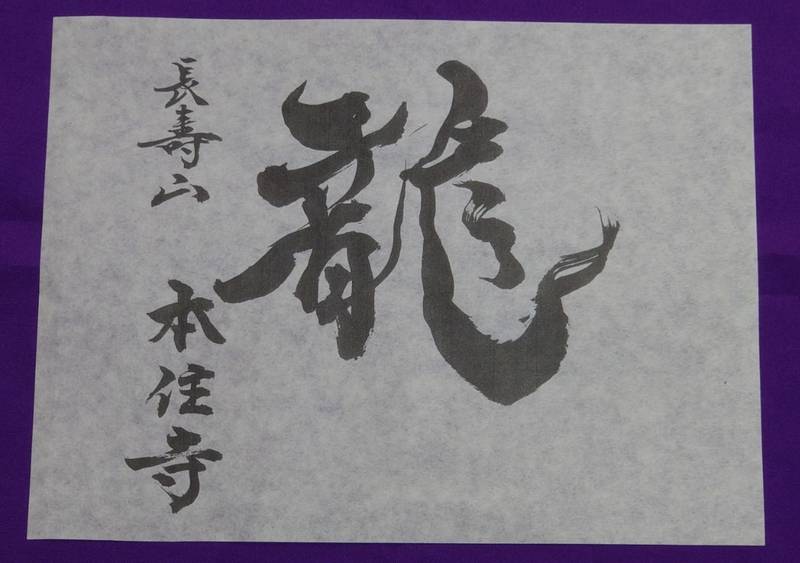 龍
長壽山
本住寺